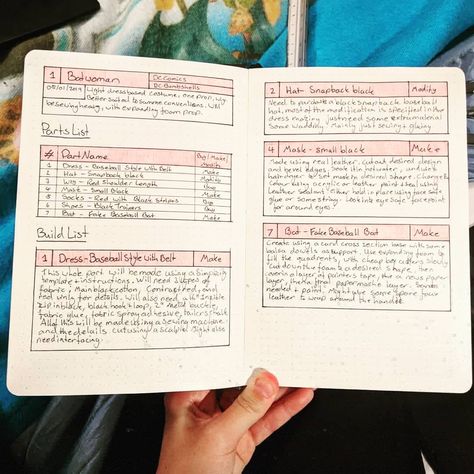 1 Batwoman DC Comics
DC Bombshells
05/01/2019 Light dress based costume, one prop, wig
Better suited to summer conventions. Will
be sewing heavy, with expanding foam prop.
Parts List
# Part Name Buy/Make/Modify
1 Dress - Baseball Style with Belt Make
2 Hat - Snapback black Modify
3 Wig - Red Shoulder Length Buy
4 Mask - Small Black Make
5 Socks - Red with Black Stripes Buy
6 Shoes - Black Buy
7 Bat - Fake Baseball Bat Make
Build List
1 Dress - Baseball Style with Belt Make
This whole part will be made using a
template + instructions. Will need 3 types of
fabric, Main black section, Contrast red, and
red vinyl for details. Will also need
zip in black, black hook + loop, 2" Metal buckle,
fabric glue, fabric spray adhesive, tailors chalk
All of this will be made using a sewing machine
and the details cut using a scalpel. Might also
need interfacing.
2 Hat - Snapback black Modify
Need to purchase a black snapback baseball
hat, most of the modification is specified in the
dress making, just need some extra material
Some wadding. Mainly just sewing + gluing
4 Mask - Small black Make
Made using real leather. Cut out desired design
and bevel edges. Soak it in hot water, and use
to set mask in desired shape. Change
colour using acrylic or leather paint + seal using
leather sealant. Either hold in place using face safe
glue or some string. Looking eye safe face paint
for around eyes?
7 Bat - Fake Baseball Bat Make
Create using a card cross section base with some
balsa dowels as support. Use expanding foam to
fill the quadrants, with cheap slowly
cut down the foam to a desired shape, then
cover in a layer of
layer, then a final papermache layer. Sanding
needed + paint. Might use some spare faux
leather to wrap around the handle.